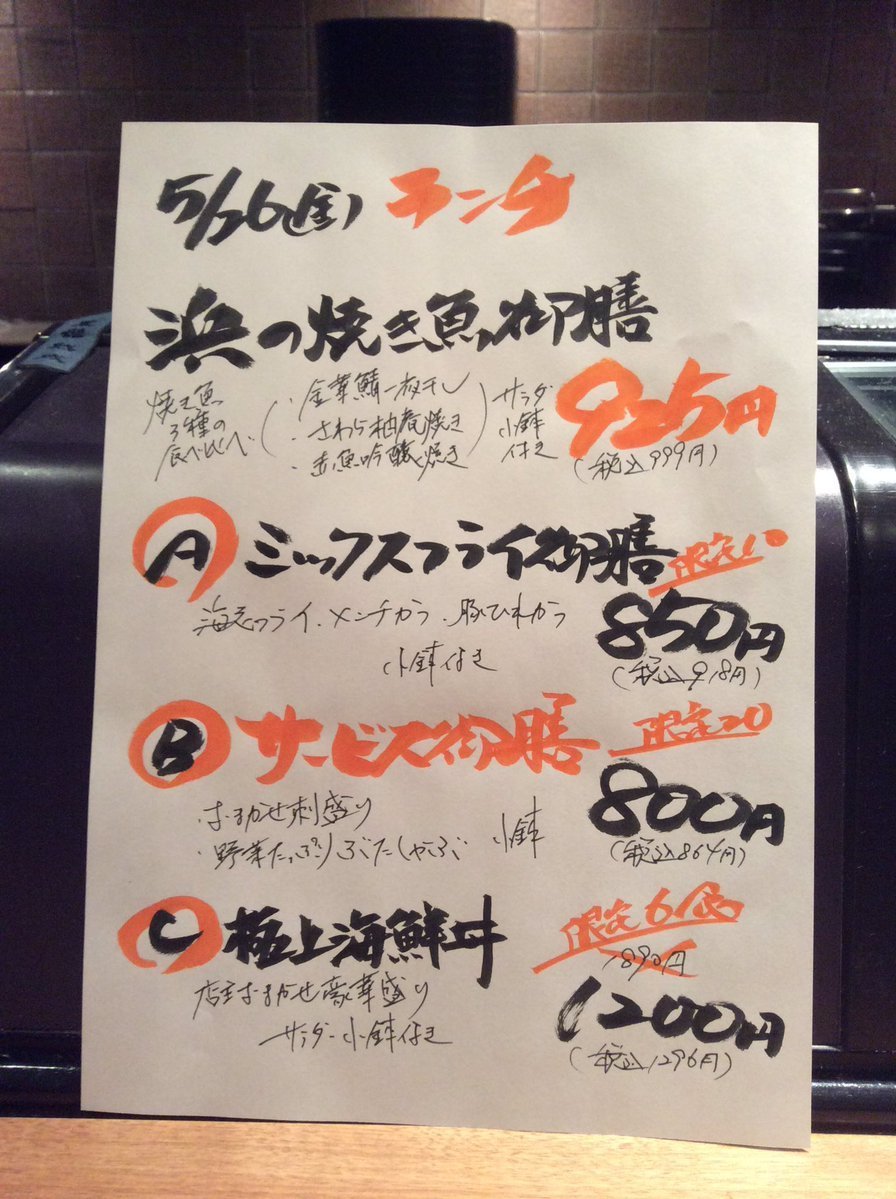 5/26(金) ランチ
浜の焼き魚御膳
焼き魚
3種の
食べ比べ
・金華鯖一枚干し
・さわら柚庵焼き
・赤魚吟醸焼き
サラダ
小鉢
付き
925円
(税込999円)
A ミックスフライ御膳 限定10
海老フライ、メンチカツ、豚ひれカツ
小鉢付き
850円
(税込918円)
B サービス御膳 限定20
・おまかせ刺盛り
・野菜たっぷりぶたしゃぶ 小鉢
800円
(税込864円)
C 極上海鮮丼 限定6食
店主おまかせ豪華盛り
サラダ・小鉢付き
1890円
1200円
(税込1296円)